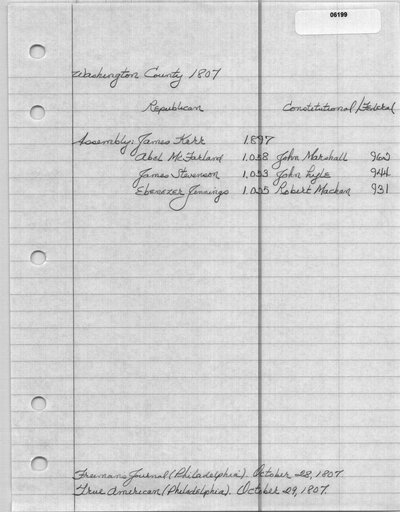 06199
Washington County 1807
Republican Constitutional/Federal
Assembly: James Kerr 1897
Abel McFarland 1.058 John Marshall 962
James Stevenson 1.053 John Lyle 944
Ebenezer Jennings 1.035 Robert Machan 931
Trumans Journal (Philadelphia). October 28, 1807.
True American (Philadelphia). October 29, 1807.